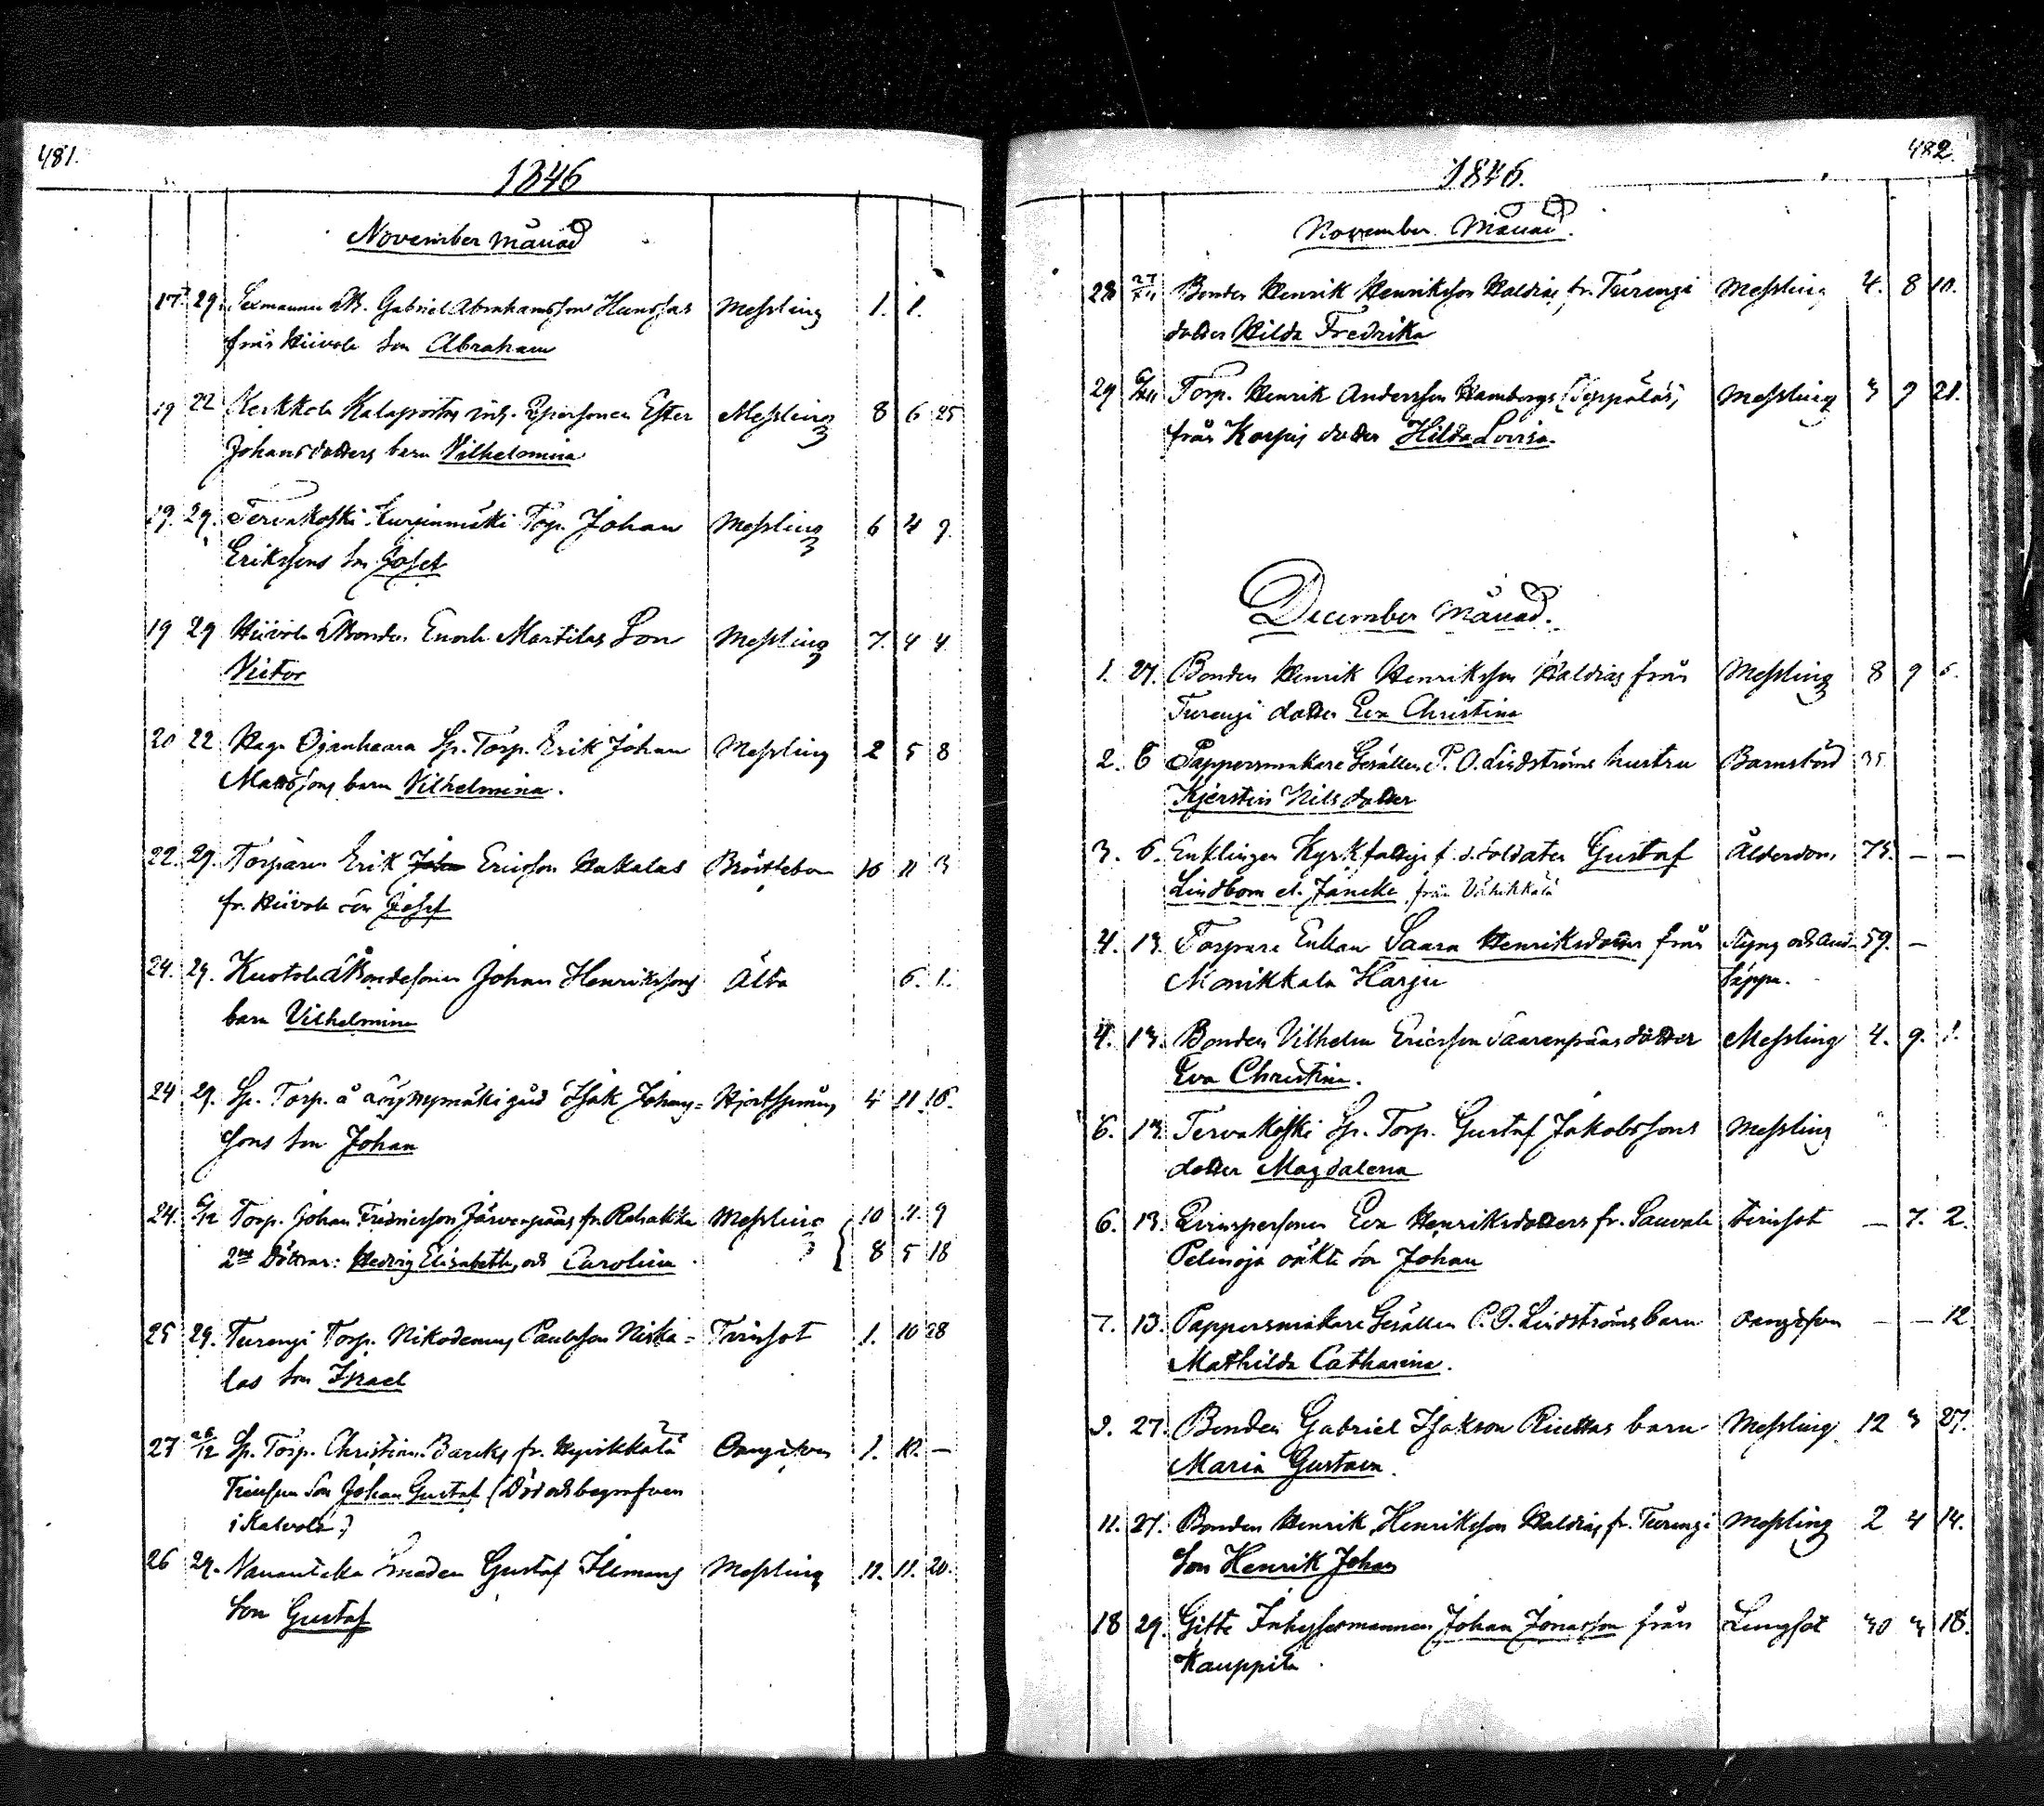 481.
1846
November månad
17. 29. Sexmannen Gabriel Abrahamssons Hunsas Messling 1. 1.
från Hiivola Son Abraham
19 22 Kerkkola Kalapoitas Qpersonen Ester Messling 8 6 25
Johansdotters barn Vilhelmina
19. 29. Tervakoski Kurjenmäki Torp. Johan Messling 6 4 9.
Erikssons Son Josef
19 29 Hiivola Bonden Enoch Martilas Son Messling 7. 4 4
Victor
20 22 Haga Ojanhaara Sp. Torp. Erik Johan Messling 2 5 8
Mattssons barn Vilhelmina.
22. 29. Torparen Erik Johan Ericson Hakalas 10 11 3
fr. Hiivola son Josef
24. 29. Bondesonen Johan Henrikssons Älta 6. 1.
barn Vilhelmina
24 29. Sp. Torp. å gård Isak Johans= 4 11 16.
sons Son Johan
24. 6/12 Torp. Johan Järvenpääs fr. Rahakka Messling 10 11. 9
2ne Döttrar: Hedvig Elisabeth, och Carolina. 8 5 18
25 29. Turengi Torp. Nikodemus Paulsson Niska= Tvinsot 1. 10 28
las Son Israel
27 26/12 Sp. Torp. Christian Barcks fr. Hyvikkälä Oangifven 1. 10. —
Son Johan Gustaf (Död och begrafven
i Kalvola)
26 29. Nauantaka Smeden Gustaf Ilemans Messling 11. 11. 20.
Son Gustaf
482.
1846.
November Månad.
28 27/12 Bonden Henrik Henriksson Haldias fr. Turengi Messling 4. 8 10.
dotter Hilda Fredrika
29 6/12 Torp. Henrik Andersson Hambergs (Seppäläs) Messling 3 9 21.
från Karpis dotter Hilda Lovisa.
December Månad.
1. 27. Bonden Henrik Henriksson Haldias från Messling 8 9 6.
Turengi dotter Eva Christina
2. 6 Pappersmakare Gesällen P. O. Lindströms hustru Barnsbörd 35
Kjerstin Nilsdotter
3. 6. Enklingen Kyrkfattige f. d. soldaten Gustaf Ålderdom 75. — —
Lindbom el. Jäncke från Vähikkälä
4. 13. Torpare Enkan Saara Henriksdotter från Styng och and= 59. —
Monikkala Harju täppa.
4. 13. Bonden Vilhelm Ericsson Saarenpääs dotter Messling 4. 9. 1.
Eva Christina.
6. 13. Tervakoski Sp. Torp. Gustaf Jakobssons Messling
dotter Magdalena
6. 13. Qvinspersonen Eva Henriksdotters fr. Sauvala tvinsot — 7. 2.
Pelinoja oäkta Son Johan
7. 13. Pappersmakare Gesällen P. O. Lindströms barn oangifven — — 12
Mathilda Catharina.
9. 27. Bonden Gabriel Isakson Riuttas barn Messling 12 3 27.
Maria Gustava.
11. 27. Bonden Henrik Henriksson Haldias fr. Turengi Messling 2 4 14.
Son Henrik Johan
18 29. Gifte Inhysesmannen Johan Jonasson från Lungsot 30 3 18.
Kauppila.